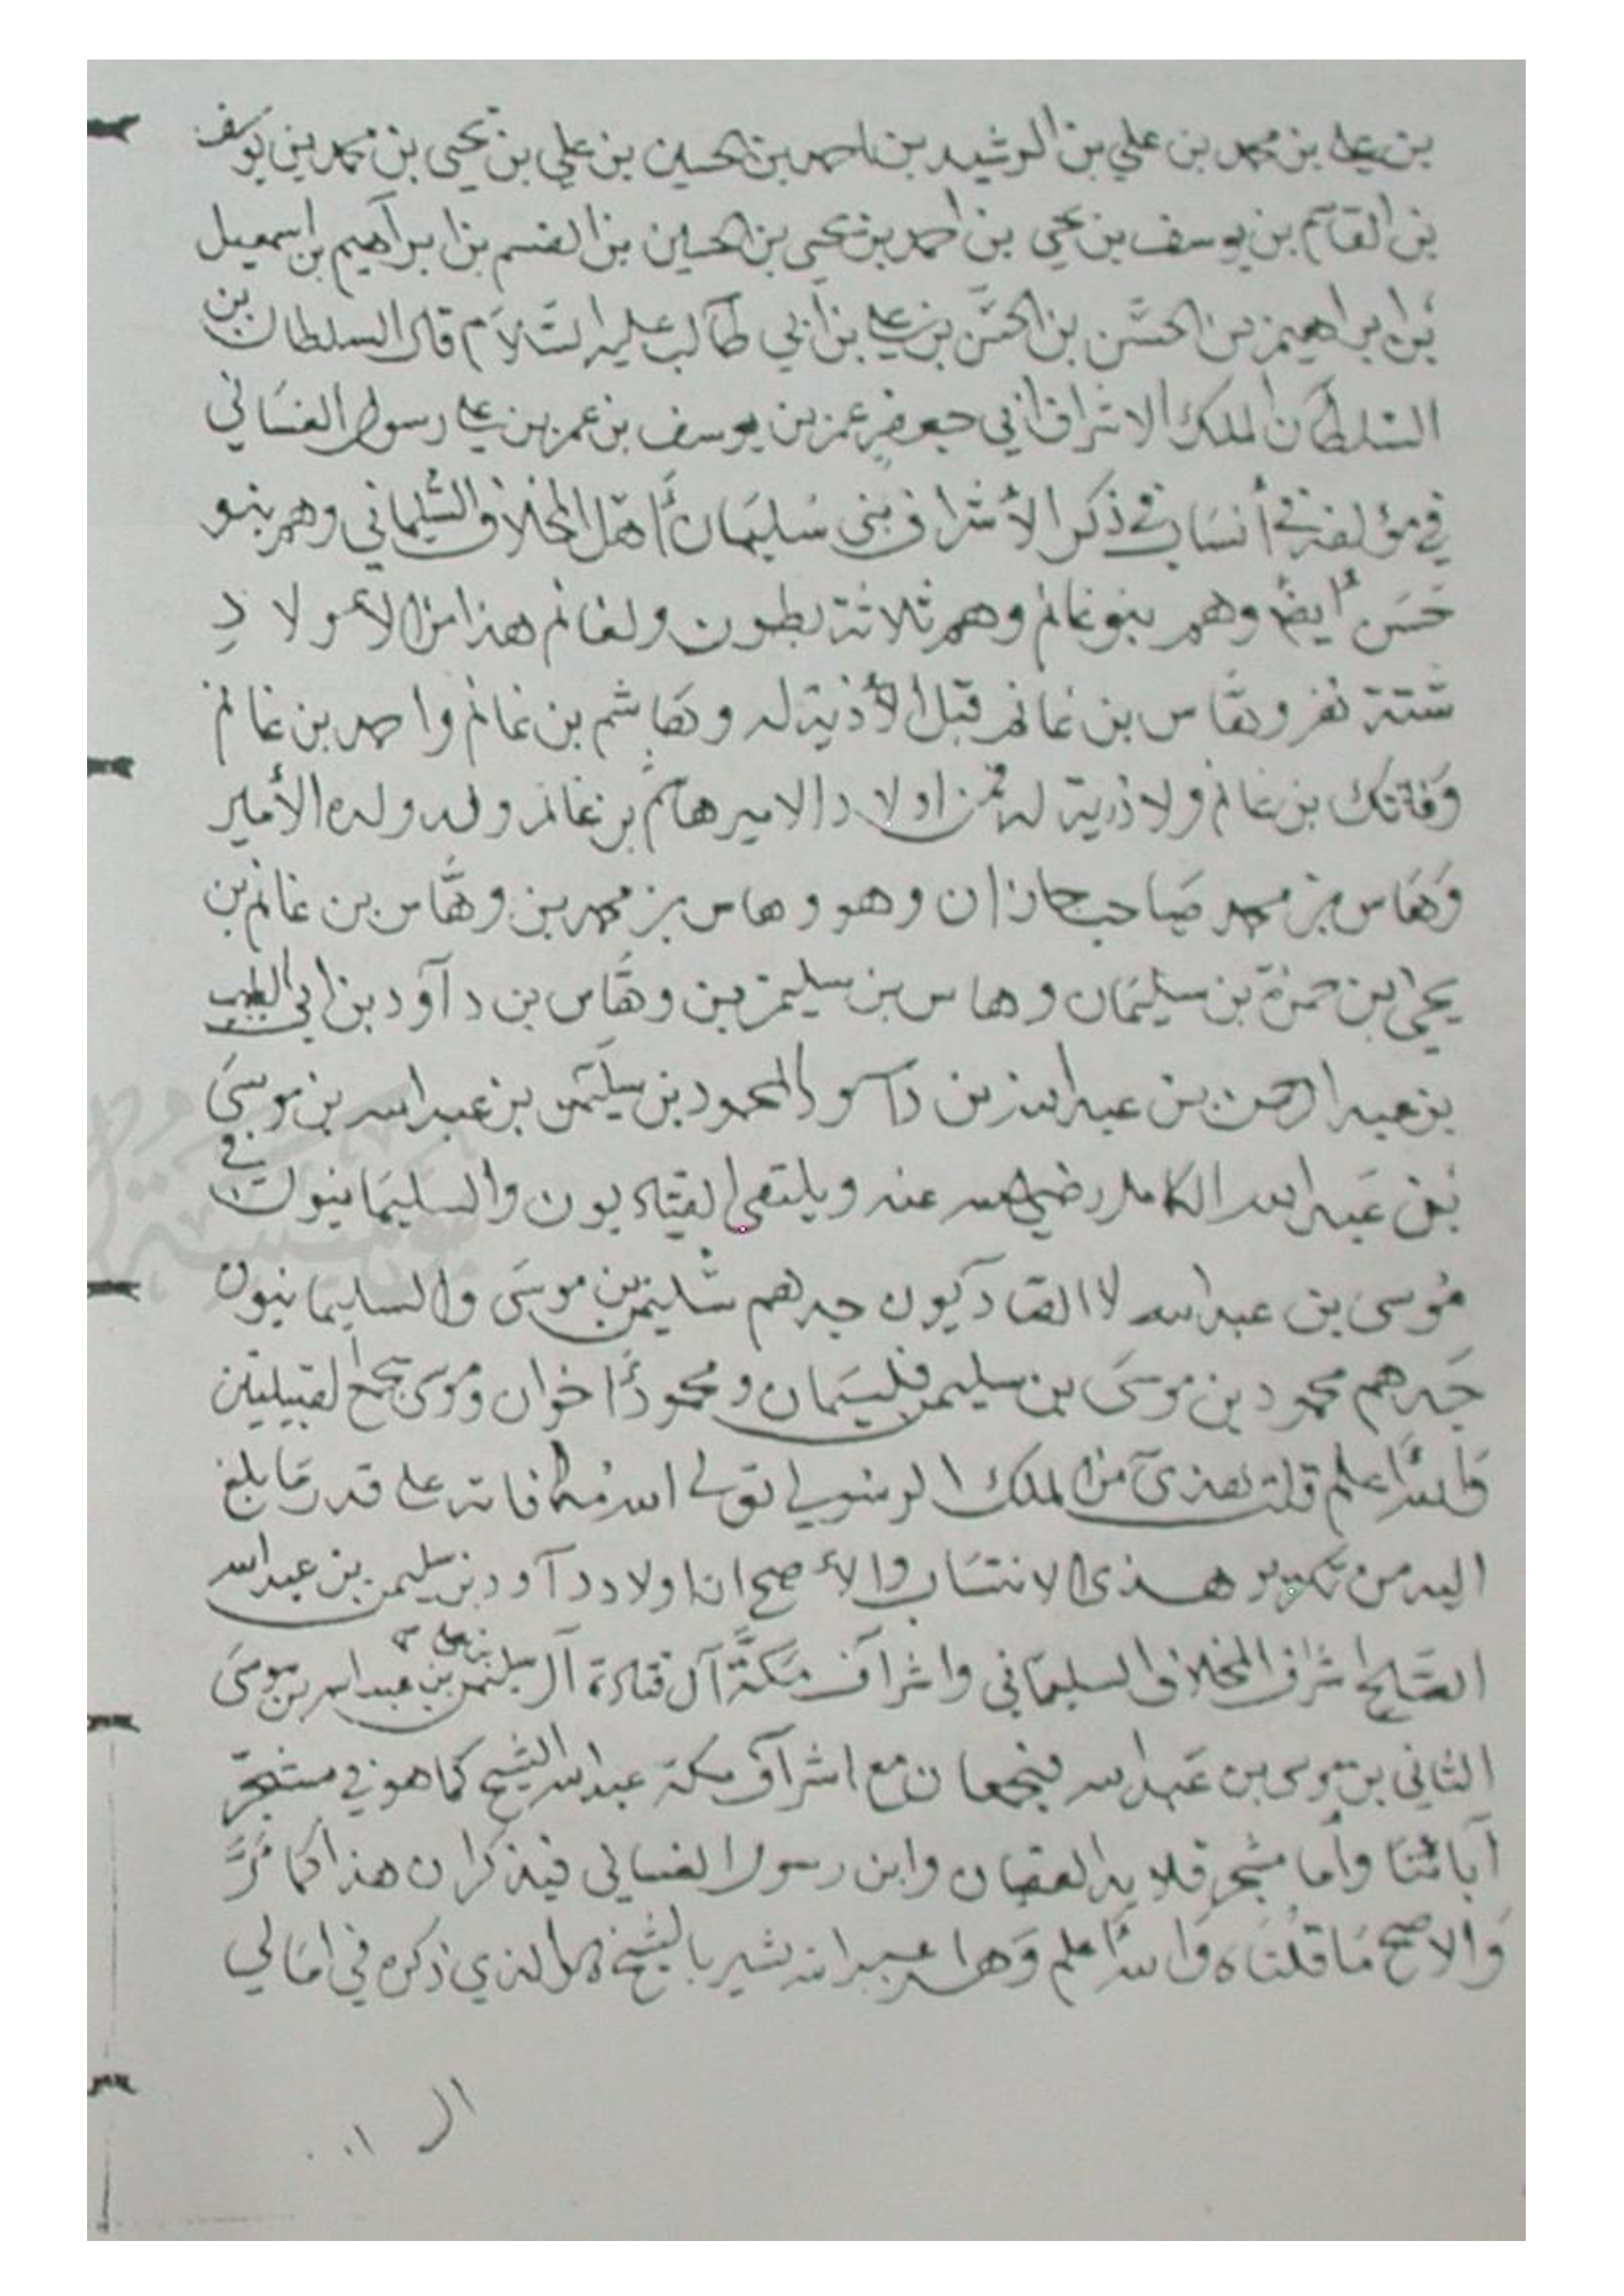 بن علي بن محمد بن علي بن الرشيد بن احمد بن الحسين بن علي بن يحيى بن محمد بن يوسف
بن القاسم بن يوسف بن يحيى بن احمد بن يحيى بن الحسين بن القسم بن ابراهيم بن اسمعيل
بن ابراهيم بن الحسن بن الحسن بن علي بن أبي طالب عليه السلام قال السلطان بن
السلطان الملك الاشراف ابي جعفر عمر بن يوسف بن عمر بن علي رسول الغساني
في مؤلفه في أنساب في ذكر الأشراف بني سليمان أهل المخلاف السليماني وهم بنو
حسن أيضا وهم بنو غانم وهم ثلاثة بطون ولغانم هذا من الأولاد
ستة نفر وهاس بن غانم قبل لأذية له وهاشم بن غانم واحمد بن غانم
وفاتك بن غانم ولا ذرية له فمن اولاد الامير هاشم بن غانم ولده ولده الأمير
وهاس بن محمد صاحب جازان وهو وهاس بن محمد بن وهاس بن غانم بن
يحيى بن حمزة بن سليمان وهاس بن سليمن بن وهاس بن دآود بن ابي الطيب
بن عبد الرحمن بن عبد الله بن داود المحمود بن سليمن بن عبد الله بن موسى
بن عبد الله الكامل رضي الله عنه ويلتقي القتاديون والسليمانيون في
موسى بن عبد الله لا القتادكيون جدهم سليمن بن موسى والسليمانيون
جدهم محمود بن موسى بن سليمن فليسمان ومحمودأخوان وموسى يجمع القبيلتين
والله أعلم قلت هذى من الملك الرسولي تولى الله مكافاته على قدر ما بلغ
اليه من تحرير هذى الانتساب والأصح ان اولاد دآود بن سليمن بن عبد الله
الصالح اشراف المخلاف السليماني واشرآف مكة آل قتادة آل سليمن بن علي بن عبد الله بن موسى
الثاني بن موسى بن عبد الله فيجمعان مع اشرآف مكة عبد الله الشيخ كما هو في مشجر
آبائنا وأما مشجر قلايد العقيان وابن رسول الغساني فيذكران هذا كما مر
والاصح ما قلناه والله أعلم وهل عبد الله نشير بالشيخ الذي ذكره في امالي
ال